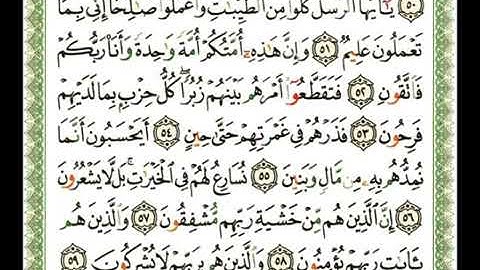 ٥٠ يَٰٓأَيُّهَا ٱلرُّسُلُ كُلُوا۟ مِنَ ٱلطَّيِّبَٰتِ وَٱعْمَلُوا۟ صَٰلِحًا إِنِّى بِمَا
تَعْمَلُونَ عَلِيمٌ ٥١ وَإِنَّ هَٰذِهِۦٓ أُمَّتُكُمْ أُمَّةً وَٰحِدَةً وَأَنَا۠ رَبُّكُمْ
فَٱتَّقُونِ ٥٢ فَتَقَطَّعُوٓا۟ أَمْرَهُم بَيْنَهُمْ زُبُرًا كُلُّ حِزْبٍۭ بِمَا لَدَيْهِمْ
فَرِحُونَ ٥٣ فَذَرْهُمْ فِى غَمْرَتِهِمْ حَتَّىٰ حِينٍ ٥٤ أَيَحْسَبُونَ أَنَّمَا
نُمِدُّهُم بِهِۦ مِن مَّالٍ وَبَنِينَ ٥٥ نُسَارِعُ لَهُمْ فِى ٱلْخَيْرَٰتِ بَل لَّا يَشْعُرُونَ
٥٦ إِنَّ ٱلَّذِينَ هُم مِّنْ خَشْيَةِ رَبِّهِم مُّشْفِقُونَ ٥٧ وَٱلَّذِينَ هُم
بِـَٔايَٰتِ رَبِّهِمْ يُؤْمِنُونَ ٥٨ وَٱلَّذِينَ هُم بِرَبِّهِمْ لَا يُشْرِكُونَ ٥٩